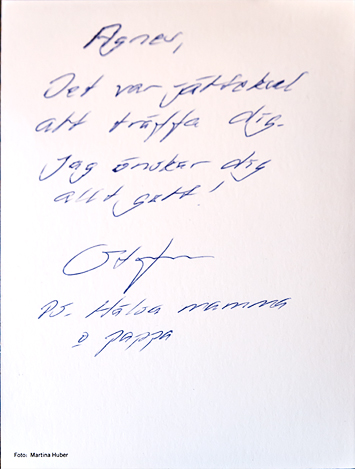 Agnes,
Det var jättekul
att träffa dig.
Jag önskar dig
allt gott!
PS. Hälsa mamma
o pappa
Foto: Martina Huber